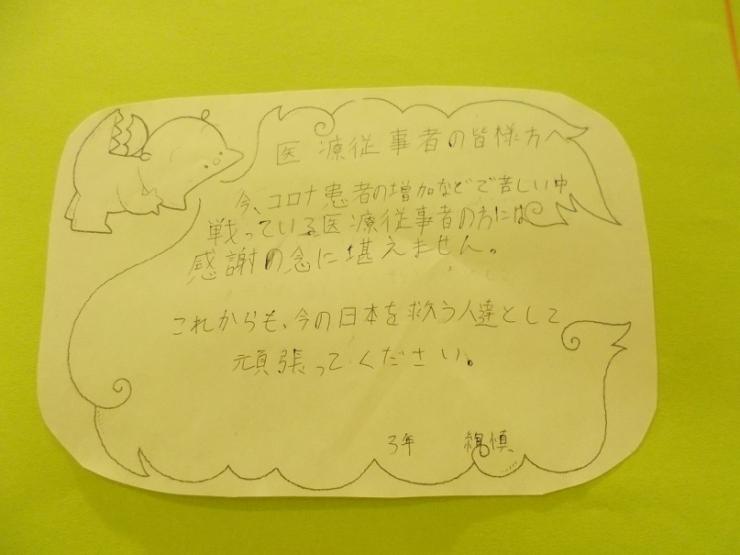 医療従事者の皆様方へ
今、コロナ患者の増加などで苦しい中
戦っている医療従事者の方には
感謝の念に堪えません。
これからも、今の日本を救う人達として
頑張ってください。
3年